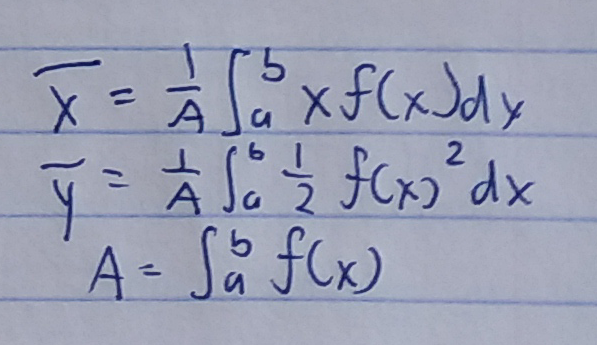 x̅ = 1/A ∫_a^b x f(x) dx
y̅ = 1/A ∫_a^b 1/2 f(x)^2 dx
A = ∫_a^b f(x)